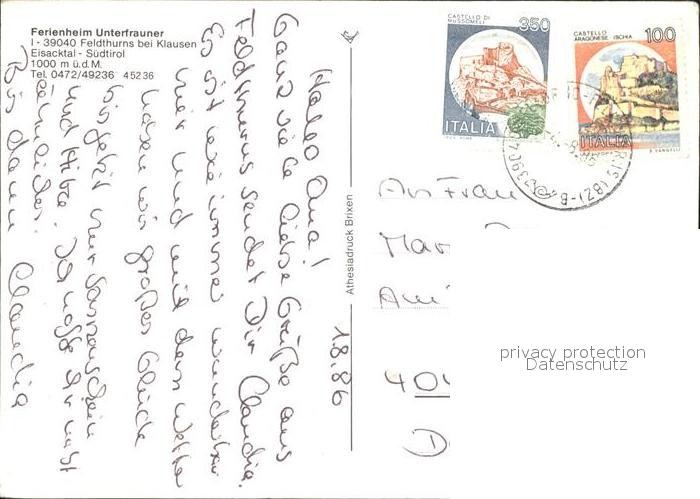 Ferienheim Unterfrauner
I - 39040 Feldthurns bei Klausen
Eisacktal - Südtirol
1000 m ü.d.M.
Tel. 0472/49236 45236
CASTELLO DI MUSSOMELI
350
ITALIA
CASTELLO ARAGONESE ISCHIA
100
ITALIA
Athesiadruck Brixen
1.8.86
Hallo Oma!
Ganz viele liebe Grüße aus
Feldthurns sendet Dir Claudia.
Es ist wie immer wunderbar
hier und mit dem Wetter
haben wir großes Glück
bis jetzt nur Sonnenschein
und Hitze. Ich hoffe Ihr habt
ähnliches.
Bis dann Claudia
An Frau
Mar
40
D
privacy protection
Datenschutz